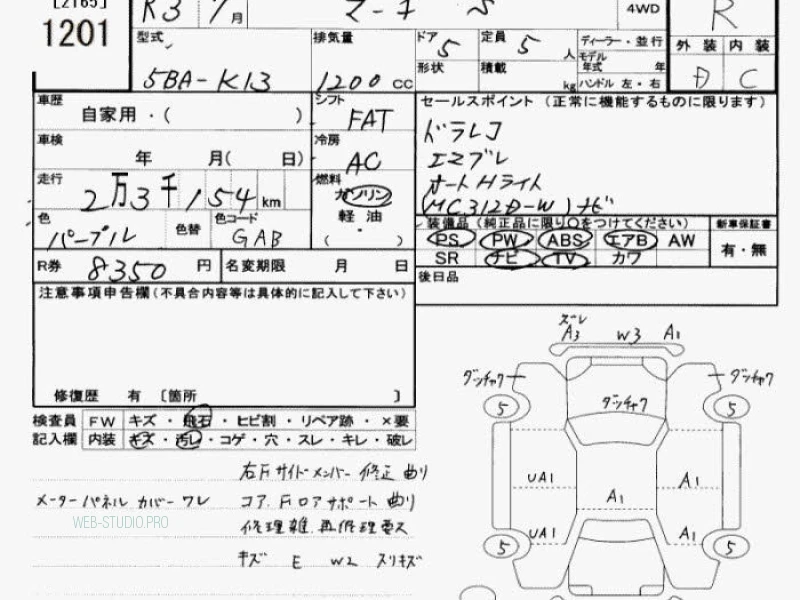 [2165]
1201
R3 7月
マーチ S
4WD
R
型式
5BA-K13
排気量
1200 cc
ドア 5
定員 5 人
形状
積載 kg
ディーラー・並行
モデル年式 年
ハンドル 左・右
外装 内装
D C
車歴
自家用・( )
シフト
FAT
車検
年 月( 日)
冷房
AC
走行
2万3千154 km
燃料
ガソリン
軽油
( ・ )
色
パープル
色替
色コード
GAB
R券 8350 円
名変期限 月 日
セールスポイント (正常に機能するものに限ります)
ドラレコ
エマブレ
オートHライト
(MC312D-W)ナビ
装備品(純正品に限り○をつけてください)
PS PW ABS エアB AW
SR ナビ TV カワ
新車保証書
有・無
後日品
注意事項申告欄(不具合内容等は具体的に記入して下さい)
修復歴 有 [箇所 ]
検査員 FW キズ・飛石・ヒビ割・リペア跡・×要
記入欄 内装 キズ・汚レ・コゲ・穴・スレ・キレ・破レ
右Fサイドメンバー 修正 曲り
メーターパネル カバー ワレ
コア、Fロアサポート 曲り
修理雑、再修理要ス
キズ E W2 スリキズ
WEB-STUDIO.PRO
ズレ
A3 W3 A1
ダンチャク ダンチャク
ダンチャク
5 5
UA1 A1
A1
UA1 A1
5 5